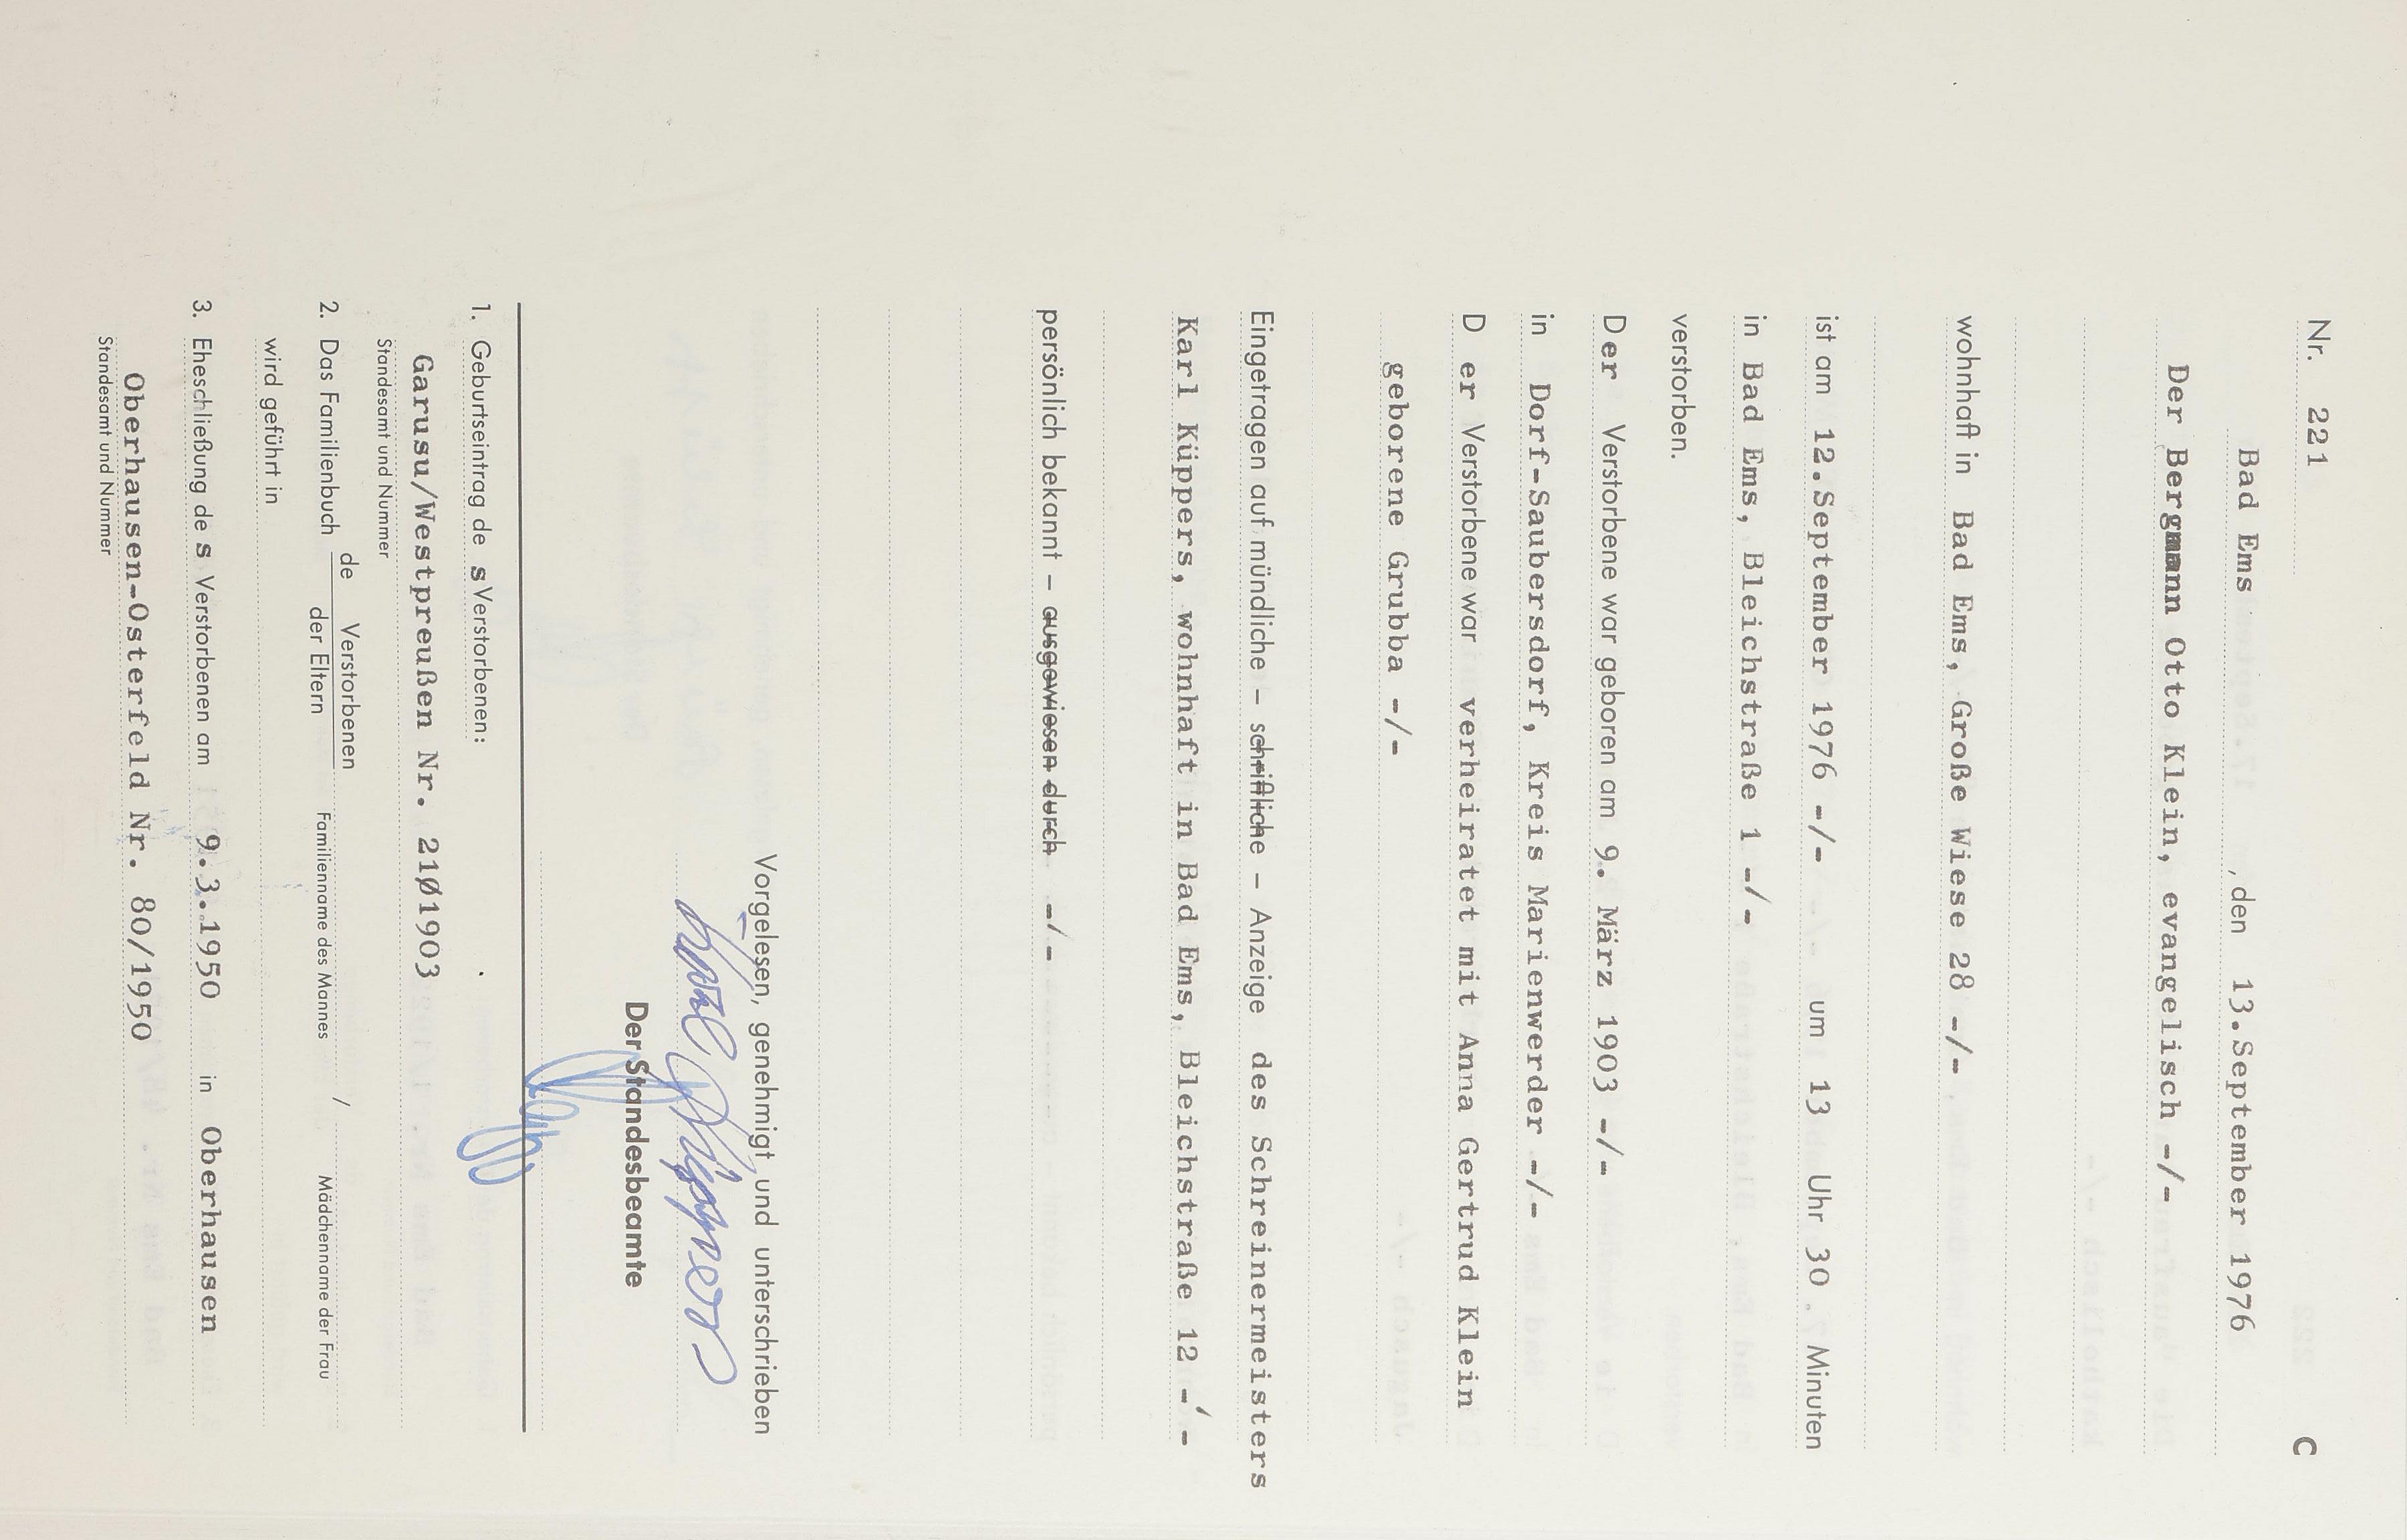 Nr. 221 C
Bad Ems , den 13.September 1976
Der Bergmann Otto Klein, evangelisch -/-
wohnhaft in Bad Ems, Große Wiese 28 -/-
ist am 12.September 1976 -/- um 13 Uhr 30 Minuten
in Bad Ems, Bleichstraße 1 -/-
verstorben.
Der Verstorbene war geboren am 9. März 1903 -/-
in Dorf-Saubersdorf, Kreis Marienwerder -/-
D er Verstorbene war verheiratet mit Anna Gertrud Klein
geborene Grubba -/-
Eingetragen auf mündliche – schriftliche – Anzeige des Schreinermeisters
Karl Küppers, wohnhaft in Bad Ems, Bleichstraße 12 -/-
persönlich bekannt – ausgewiesen durch -/-
Vorgelesen, genehmigt und unterschrieben
Karl Küppers
Der Standesbeamte
1. Geburtseintrag de s Verstorbenen:
Garusu/Westpreußen Nr. 21Ø1903
Standesamt und Nummer
2. Das Familienbuch de Verstorbenen / der Eltern
Familienname des Mannes Mädchenname der Frau
wird geführt in
3. Eheschließung de s Verstorbenen am 9.3.1950 in Oberhausen
Oberhausen-Osterfeld Nr. 80/1950
Standesamt und Nummer